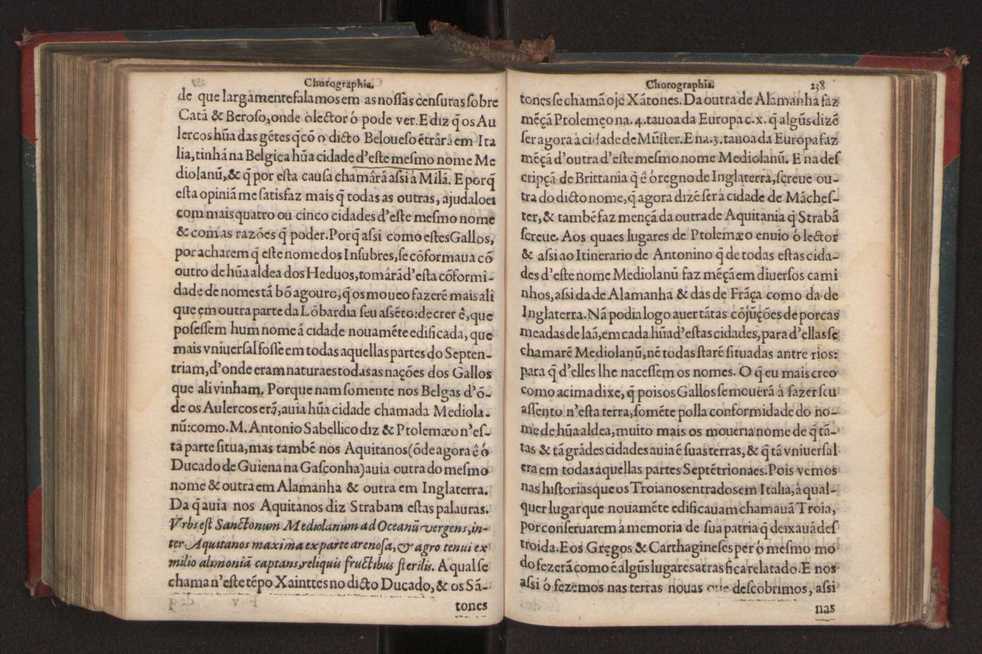 Chorographia.
de que largamente falamos em as nossas censuras sobre
Catã & Beroso, onde o lector ò pode ver. E diz q̃ os Au
lercos hũa das gẽtes q̃ cõ o dicto Beloueso ẽtrârã em Ita
lia, tinhã na Belgica hũa cidade d'este mesmo nome Me
diolanũ, & q̃ por esta causa chamârã assi â Milã. E porq̃
esta opiniã me satisfaz mais q̃ todas as outras, ajudaloei
com mais quatro ou cinco cidades d'este mesmo nome
& com as razões q̃ poder. Porq̃ assi como estes Gallos,
por acharem q̃ este nome dos Insubres, se cõformaua cõ
outro de hũa aldea dos Heduos, tomârã d'esta cõformi-
dade de nomes tã bõ agouro, q̃ os moueo fazerẽ mais ali
que em outra parte da Lõbardia seu assẽto: de crer ê, que
posessem hum nome â cidade nouamẽte edificada, que
mais vniuersal fosse em todas aquellas partes do Septen-
triam, d'onde eram naturaes todas as nações dos Gallos
que ali vinham. Porque nam somente nos Belgas d'õ-
de os Aulercos erã, auia hũa cidade chamada Mediola-
nũ: como. M. Antonio Sabellico diz & Ptolemæo n'es-
ta parte situa, mas tambẽ nos Aquitanos (õde agora ê ò
Ducado de Guiena na Gasconha) auia outra do mesmo
nome & outra em Alamanha & outra em Inglaterra.
Da q̃ auia nos Aquitanos diz Strabam estas palauras.
Vrbs est Sanctonum Mediolanum ad Oceanũ vergens, in-
ter Aquitanos maxima ex parte arenosa, & agro tenui ex
milio alimoniã captans, reliquis fructibus sterilis. A qual se
chama n'este tẽpo Xainttes no dicto Ducado, & os Sã-
tones
Chorographia. 238
tones se chamã oje Xãtones. Da outra de Alamanha faz
mẽçã Ptolemeo na. 4. tauoa da Europa c. x. q̃ algũs dizẽ
ser agora â cidade de Mũster. E na. 3. tauoa da Europa faz
mẽçã d'outra d'este mesmo nome Mediolanũ. E na des
cripçã de Brittania q̃ ê ò regno de Inglaterra, screue ou-
tra do dicto nome, q̃ agora dizẽ ser â cidade de Mãches-
ter, & tambẽ faz mençã da outra de Aquitania q̃ Strabã
screue. Aos quaes lugares de Ptolemæo enuio ò lector
& assi ao Itinerario de Antonino q̃ de todas estas cida-
des d'este nome Mediolanũ faz mẽçã em diuersos cami
nhos, assi da de Alamanha & das de Frãça como da de
Inglaterra. Nã podia logo auer tãtas cõjũções de porcas
meadas de laã, em cada hũa d'estas cidades, para d'ellas se
chamarẽ Mediolanũ, nẽ todas starẽ situadas antre rios:
para q̃ d'elles lhe nacessem os nomes. O q̃ eu mais creo
como acima dixe, q̃ pois os Gallos se mouerã â fazer seu
assento n'esta terra, somẽte polla conformidade do no-
me de hũa aldea, muito mais os moueria nome de q̃ tã-
tas & tã grãdes cidades auia ẽ suas terras, & q̃ tã vniuersal
era em todas aquellas partes Septẽtrionaes. Pois vemos
nas historias que os Troianos entrados em Italia, à qual-
quer lugar que nouamẽte edificauam chamauã Troia,
por conseruarem â memoria de sua patria q̃ deixauã des
troida. E os Gregos & Carthagineses per ò mesmo mo
do fezerã como ê algũs lugares atras fica relatado. E nos
assi ò fezemos nas terras nouas que descobrimos, assi
nas